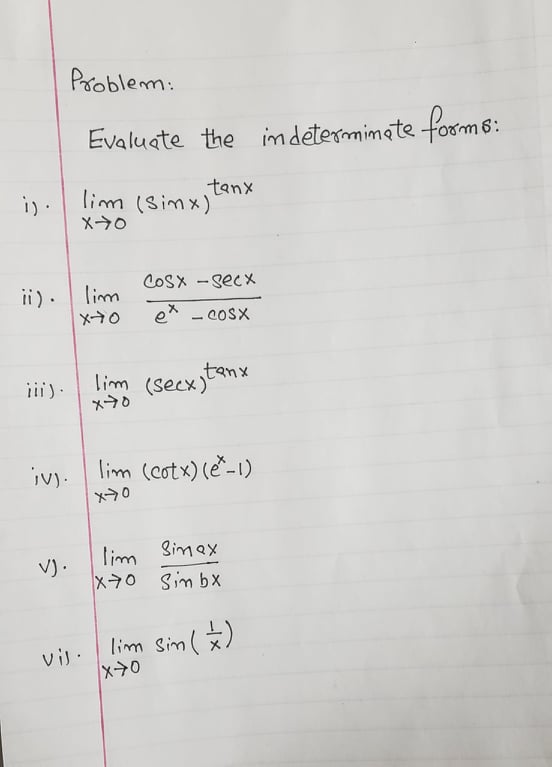 Problem:
Evaluate the indeterminate forms:
i). lim x→0 (sinx)^tanx
ii). lim x→0 (cosx - secx)/(e^x - cosx)
iii). lim x→0 (secx)^tanx
iv). lim x→0 (cotx)(e^x-1)
v). lim x→0 (sinax)/(sinbx)
vi). lim x→0 sin(1/x)